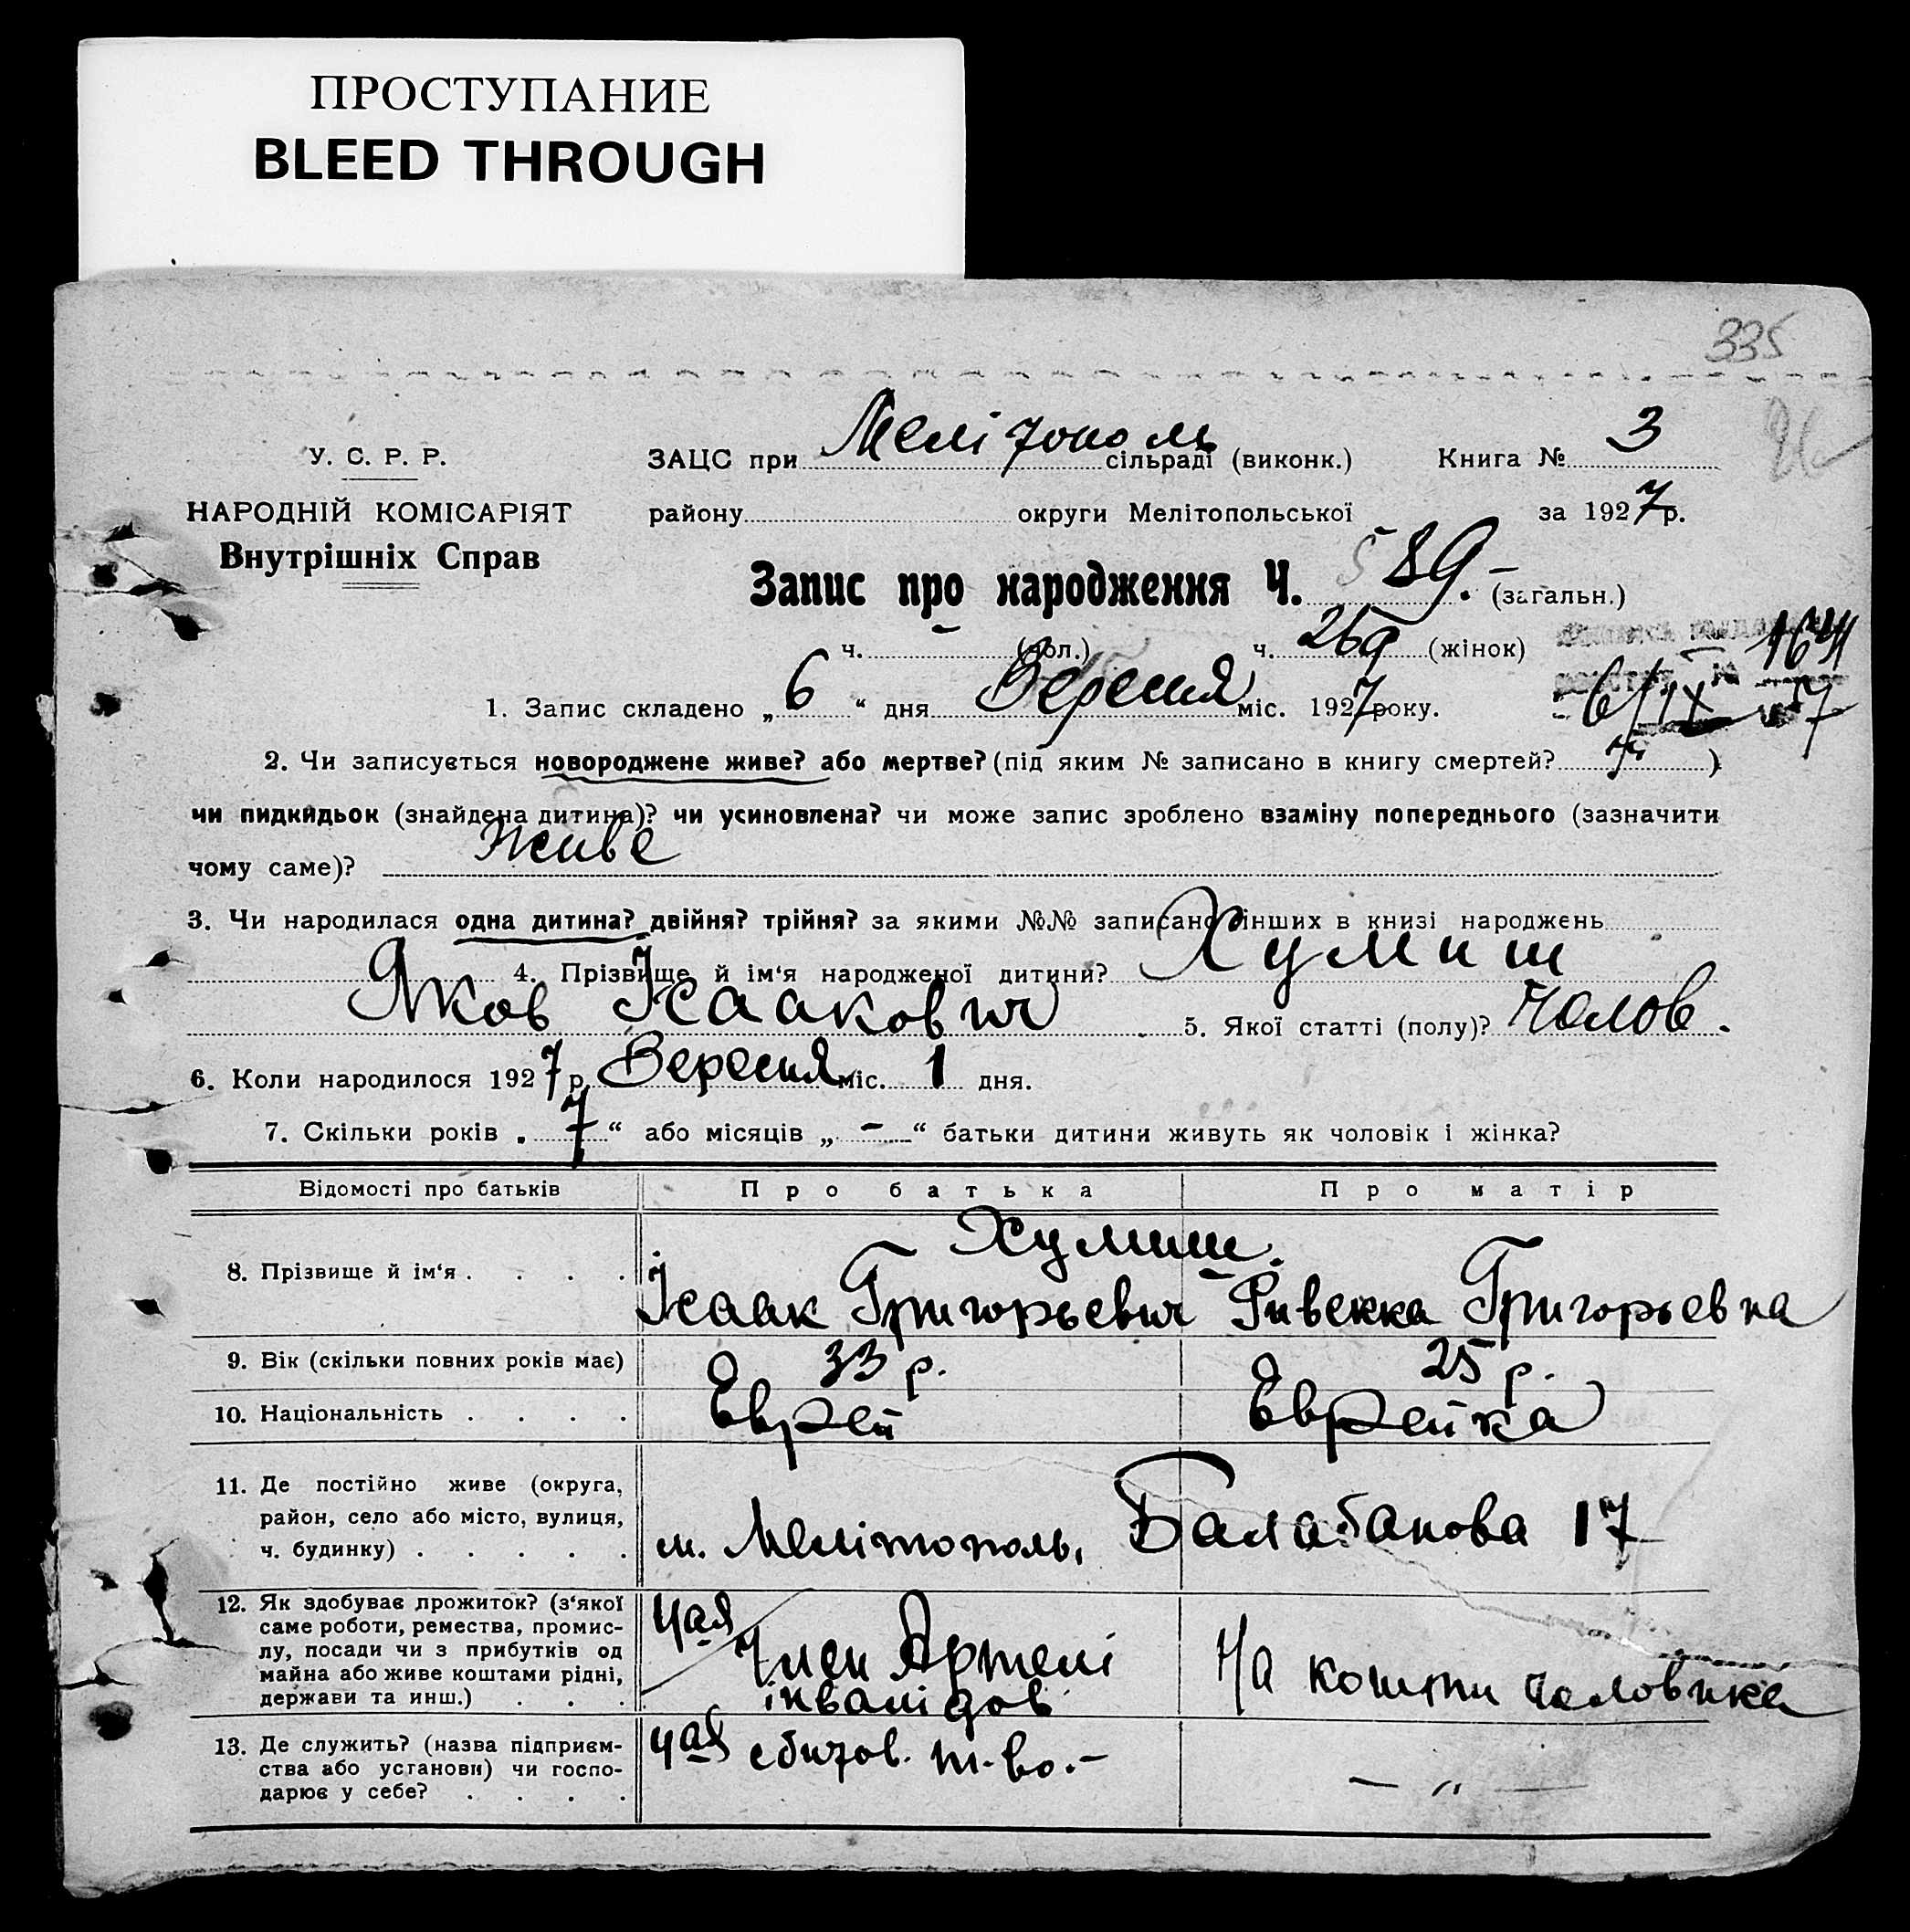 ПРОСТУПАНИЕ
BLEED THROUGH
335
У. С. Р. Р.
ЗАЦС при Мелітополь сільраді (виконк.) Книга № 3
НАРОДНІЙ КОМІСАРІЯТ
району округи Мелітопольської за 1927 р.
Внутрішніх Справ
Запис про народження Ч. 589.- (загальн.)
ч. - (чол.) ч. 269 (жінок)
1. Запис складено „ 6 “ дня Вересня міс. 1927 року.
6/IX 7
2. Чи записується новороджене живе? або мертве? (під яким № записано в книгу смертей? )
чи пидкидьок (знайдена дитина)? чи усиновлена? чи може запис зроблено взаміну попереднього (зазначити
чому саме)? Живе
3. Чи народилася одна дитина? двійня? трійня? за якими №№ записано інших в книзі народжень
4. Прізвище й ім‘я народженої дитини? Хумиш
Яков Ісаакович 5. Якої статті (полу)? Чолов.
6. Коли народилося 1927 р. Вересня міс. 1 дня.
7. Скільки років „ 7 “ або місяців „ - “ батьки дитини живуть як чоловік і жінка?
Відомості про батьків Про батька Про матір
Хумиш.
8. Прізвище й ім‘я . . . . Ісаак Григорьевич Ривекка Григорьевна
9. Вік (скільки повних років має) 33 р. 25 р.
10. Національність . . . . Еврей Еврейка
11. Де постійно живе (округа,
район, село або місто, вулиця,
ч. будинку) . . . . . м. Мелітополь, Балабанова 17
12. Як здобуває прожиток? (з‘якої
саме роботи, ремества, промис-
лу, посади чи з прибутків од
майна або живе коштами рідні,
держави та инш.) . . .
Член Артелі
інвалідов
На кошти чоловика
13. Де служить? (назва підприєм-
ства або установи) чи госпо-
дарює у себе? . . . .
т-во.-
— „ —